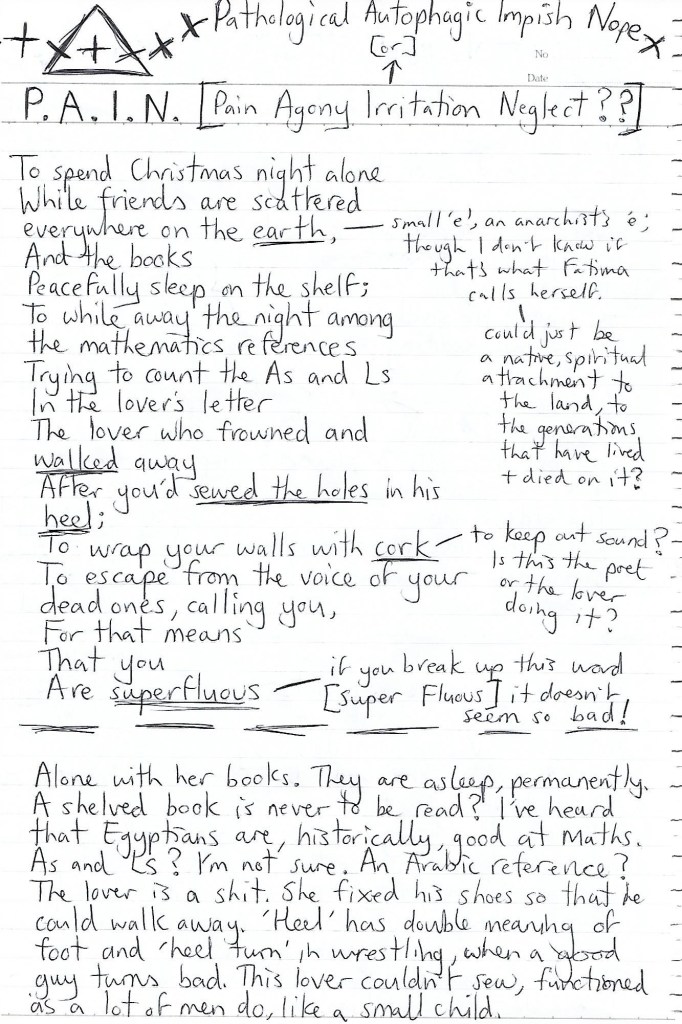 Pathological Autophagic Impish Nope
[or]
No
Date
P.A.I.N. [Pain Agony Irritation Neglect??]
To spend Christmas night alone
While friends are scattered
everywhere on the earth,
And the books
Peacefully sleep on the shelf;
To while away the night among
the mathematics references
Trying to count the As and Ls
In the lover's letter
The lover who frowned and
walked away
After you'd sewed the holes in his
heel;
To wrap your walls with cork
To escape from the voice of your
dead ones, calling you,
For that means
That you
Are superfluous
small 'e', an anarchist's 'e';
though I don't know if
that's what Fatima
calls herself.
could just be
a native, spiritual
attachment to
the land, to
the generations
that have lived
+ died on it?
to keep out sound?
Is this the poet
or the lover
doing it?
if you break up this word
[Super Fluous] it doesn't
seem so bad!
Alone with her books. They are asleep, permanently.
A shelved book is never to be read? I've heard
that Egyptians are, historically, good at Maths.
As and Ls? I'm not sure. An Arabic reference?
The lover is a shit. She fixed his shoes so that he
could walk away. 'Heel' has double meaning of
foot and 'heel turn' in wrestling, when a good
guy turns bad. This lover couldn't sew, functioned
as a lot of men do, like a small child.